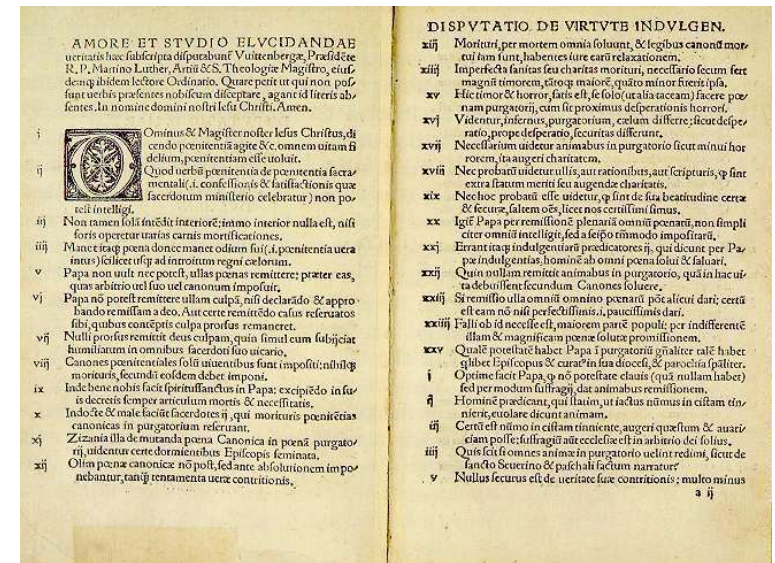 AMORE ET STVDIO ELVCIDANDAE
ueritatis hæc subscripta disputabunť Vuittenbergæ, Præsidēte
R. P. Martino Luther, Artiū & S. Theologiæ Magistro, eius-
demq; ibidem lectore Ordinario. Quare petit ut qui non pos-
sunt uerbis præsentes nobiscum disceptare, agant id literis ab-
sentes. In nomine domini nostri Iesu Christi. Amen.
i Ominus & Magister noster Iesus Christus, di
cendo pœnitentiā agite &c. omnem uitam fi
delium, pœnitentiam esse uoluit.
ij Quod uerbū pœnitentia de pœnitentia sacra-
mentali (.i. confessionis & satisfactionis quæ
sacerdotum ministerio celebratur) non po-
test intelligi.
iij Non tamen solā intēdit interiorē; immo interior nulla est, nisi
foris operetur uarias carnis mortificationes.
iiij Manet itaq; pœna donec manet odium sui (.i. pœnitentia uera
intus) scilicet usq; ad introitum regni cælorum.
v Papa non uult nec potest, ullas pœnas remittere; præter eas,
quas arbitrio uel suo uel canonum imposuit.
vj Papa nō potest remittere ullam culpā, nisi declarādo & appro
bando remissam a deo. Aut certe remittēdo casus reseruatos
sibi, quibus contēptis culpa prorsus remaneret.
vij Nulli prorsus remittit deus culpam, quin simul eum subijciat
humiliatum in omnibus sacerdoti suo uicario.
viij Canones pœnitentiales solū uiuentibus sunt impositi; nihilq;
morituris, secundū eosdem debet imponi.
ix Inde bene nobis facit spiritussanctus in Papa; excipiēdo in su-
is decretis semper articulum mortis & necessitatis.
x Indocte & male faciūt sacerdotes ij, qui morituris pœnitētias
canonicas in purgatorium reseruant.
xj Zizania illa de mutanda pœna Canonica in pœnā purgato-
rij, uidentur certe dormientibus Episcopis seminata.
xij Olim pœnæ canonicæ nō post, sed ante absolutionem impo-
nebantur, tanq̄ tentamenta ueræ contritionis.
DISPVTATIO DE VIRTVTE INDVLGEN.
xiij Morituri, per mortem omnia soluunt, & legibus canonū mor-
tui iam sunt, habentes iure earū relaxationem.
xiiij Imperfecta sanitas seu charitas morituri, necessario secum fert
magnū timorem, tātoq; maiorē, quāto minor fuerit ipsa.
xv Hic timor & horror, satis est, se solo (ut alia taceam) facere pœ-
nam purgatorij, cum sit proximus desperationis horrori.
xvj Videntur, infernus, purgatorium, cælum differre; sicut despe-
ratio, prope desperatio, securitas differunt.
xvij Necessarium uidetur animabus in purgatorio sicut minui hor
rorem, ita augeri charitatem.
xviij Nec probatū uidetur ullis, aut rationibus, aut scripturis, q̄ sint
extra statum meriti seu augendæ charitatis.
xix Nec hoc probatū esse uidetur, q̄ sint de sua beatitudine certæ
& securæ, saltem oēs, licet nos certissimi simus.
xx Igiť Papa per remissionē plenariā omniū pœnarū, non simpli
citer omniū intelligit, sed a seipō tm̄modo impositarū.
xxj Errant itaq; indulgentiarū prædicatores ij, qui dicunt per Pa-
pæ indulgentias, hominē ab omni pœna solui & saluari.
xxij Quin nullam remittit animabus in purgatorio, quā in hac ui-
ta debuissent secundum Canones soluere.
xxiij Si remissio ulla omniū omnino pœnarū pōt alicui dari; certū
est eam nō nisi perfectissimis .i. paucissimis dari.
xxiiij Falli ob id necesse est, maiorem partē populi; per indifferentē
illam & magnificam pœnæ solutæ promissionem.
xxv Qualē potestatē habet Papa ī purgatoriū gn̄aliter talē habet
q̄libet Episcopus & curatꝰ in sua diocesi, & parochia sp̄aliter.
i Optime facit Papa, q̄ nō potestate clauis (quā nullam habet)
sed per modum suffragij, dat animabus remissionem.
ij Hominē prædicant, qui statim, ut iactus nūmus in cistam tin-
nierit, euolare dicunt animam.
iij Certū est nūmo in cistam tinniente, augeri quæstum & auari-
ciam posse; suffragiū aūt ecclesiæ est in arbitrio dei solius.
iiij Quis scit si omnes animæ in purgatorio uelint redimi, sicut de
sancto Seuerino & paschali factum narratur?
v Nullus securus est de ueritate suæ contritionis; multo minus
a ij